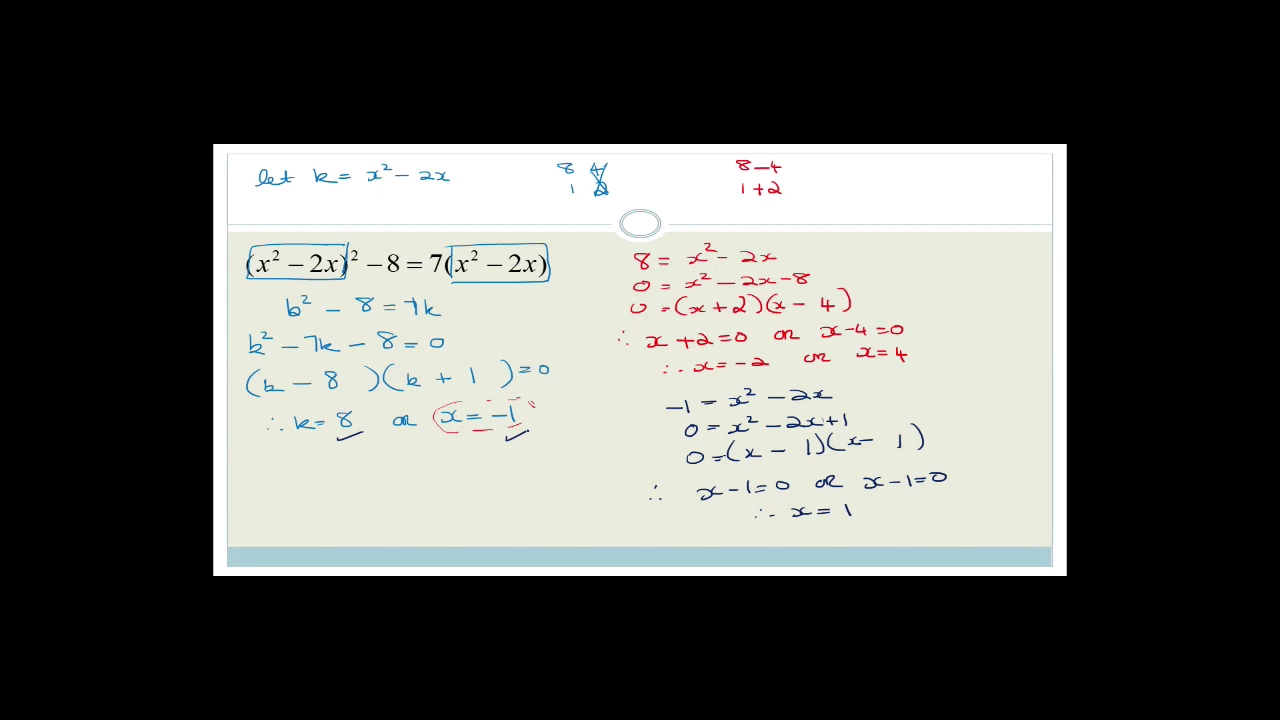 let k = x² − 2x
8 4
1 2
8 − 4
1 + 2
(x² − 2x)² − 8 = 7(x² − 2x)
k² − 8 = 7k
k² − 7k − 8 = 0
(k − 8 )(k + 1 ) = 0
∴ k = 8 or x = −1
8 = x² − 2x
0 = x² − 2x − 8
0 = (x + 2)(x − 4)
∴ x + 2 = 0 or x − 4 = 0
∴ x = −2 or x = 4
−1 = x² − 2x
0 = x² − 2x + 1
0 = (x − 1)(x − 1)
∴ x − 1 = 0 or x − 1 = 0
∴ x = 1